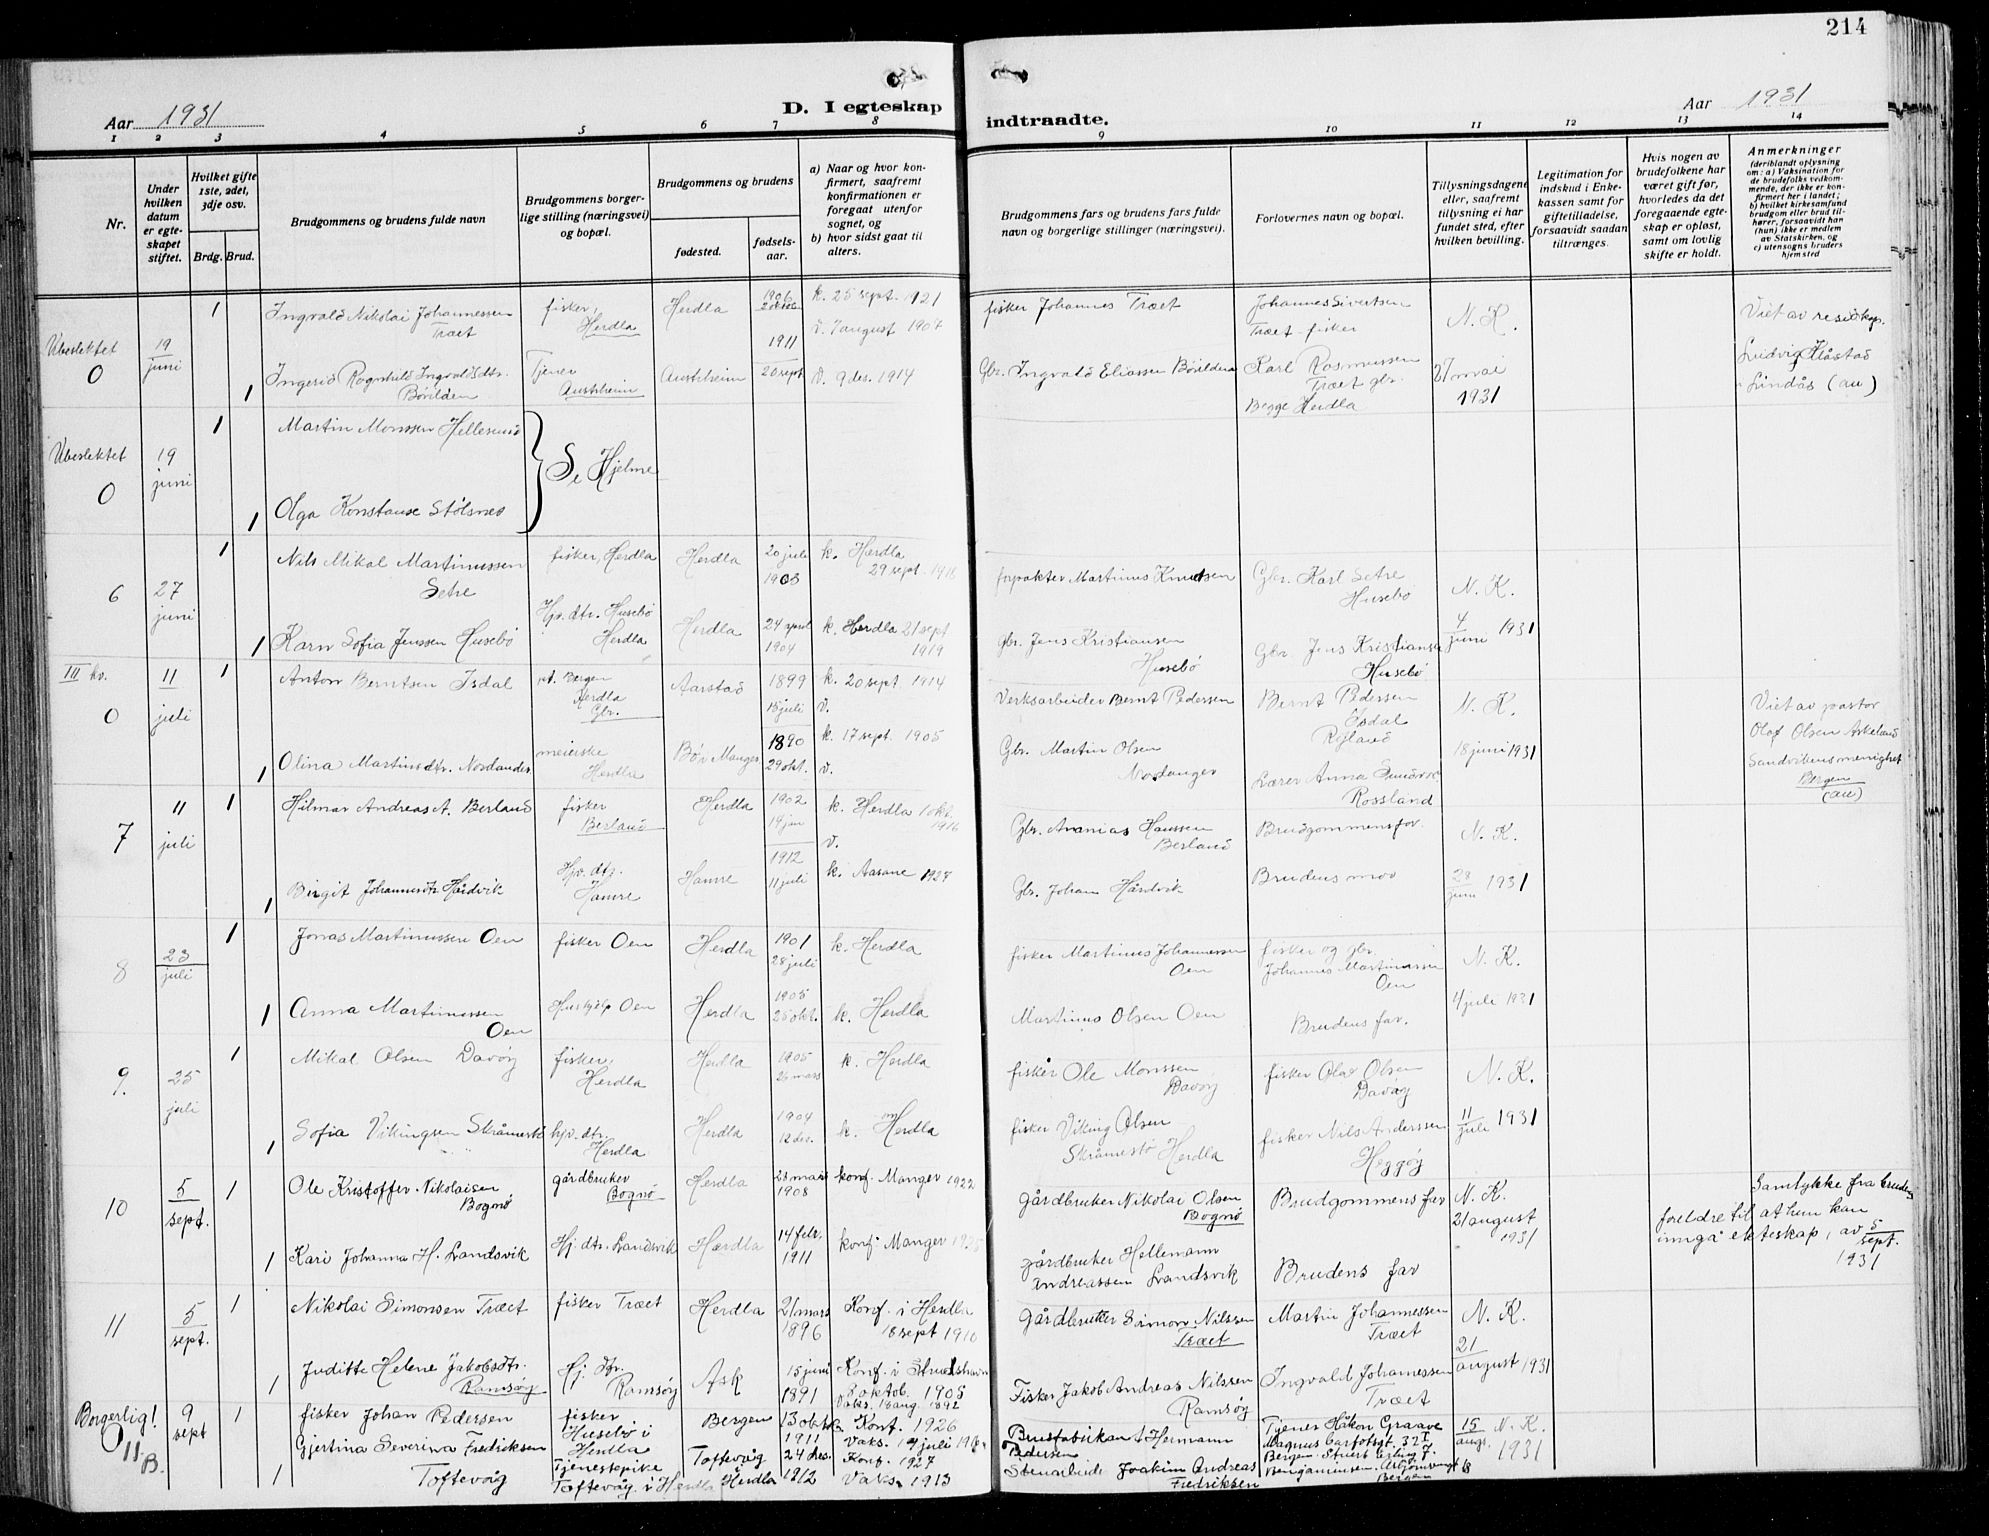 214
Aar 1931
D. I egteskap
indtraadte.
Aar 1931
1 2 3 4 5 6 7 8 9 10 11 12 13 14
Nr.
Under hvilken datum er egteskapet stiftet.
Hvilket gifte 1ste, 2det, 3dje osv.
Brdg. Brud.
Brudgommens og brudens fulde navn
Brudgommens borgerlige stilling (næringsvei) og bopæl.
Brudgommens og brudens
fødested.
fødselsaar.
a) Naar og hvor konfirmert, saafremt konfirmationen er foregaat utenfor sognet, og
b) hvor sidst gaat til alters.
Brudgommens fars og brudens fars fulde navn og borgerlige stillinger (næringsvei).
Forlovernes navn og bopæl.
Tillysningsdagene eller, saafremt tillysning ei har fundet sted, efter hvilken bevilling.
Legitimation for indskud i Enkekassen samt for giftetilladelse, forsaavidt saadan tiltrænges.
Hvis nogen av brudefolkene har været gift før, hvorledes da det foregaaende egteskap er opløst, samt om lovlig skifte er holdt.
Anmerkninger
(deriblandt oplysning om: a) Vaksination for de brudefolks vedkommende, der ikke er konfirmert her i landet; b) hvilket kirkesamfund brudgom eller brud tilhører, forsaavidt han (hun) ikke er medlem av Statskirken, og c) utensogns bruders hjemsted
Ubeslektet
0
19 juni
1
Ingvald Nikolai Johannessen Træet
fisker, Herdla
Herdla
1906
k. 25 sept. 1921
v. 7 august 1907
fisker Johannes Træet
Johannes Sivertsen Træet fisker
N. K.
Viet av resid.kap.
1
Ingerid Ragnhild Ingvaldsdtr. Børilden
Tjener Austrheim
Austrheim
1911
20 sept
v. 9 des. 1914
Gbr. Ingvald Eliassen Børilden
Karl Rasmussen Træet gbr.
Begge Herdla
27 mai 1931
Ludvig Flåstad
Lindås (au)
Ubeslektet
0
19 juni
1
Martin Monssen Hellesund
Se Hjelme
1
Olga Konstanse Stølsnes
6
27 juni
1
Nils Mikal Martinussen Setre
fisker, Herdla
Herdla
20 juli 1903
k. Herdla 29 sept. 1918
forpakter Martinus Knutsen
Gbr. Karl Setre Husebö
N. K.
1
Karn Sofia Jenssen Husebö
Hjv. dtr. Husebö Herdla
Herdla
24 april 1904
k. Herdla 21 sept 1919
gbr. Jens Kristiansen Husebö
Gbr. Jens Kristiansen Husebö
4 juni 1931
III kv.
0
11 juli
1
Anton Berntsen Isdal
pt. Bergen Herdla Gbr.
Aarstad
1899 15 juli
k. 20 sept. 1914
v.
Verksarbeider Bernt Pedersen
Bernt Pedersen Isdal Rylaud
N. K.
Viet av pastor
Olaf Olsen Askeland
Sandvikensmenighet
Bergen
(au)
1
Olina Martinsdtr. Nordanger
meierske Herdla
Böv Manger
1890 29 okt.
k. 17 sept. 1905
v.
Gbr. Martin Olsen Nordanger
Lærer Anna Rossland
18 juni 1931
7
11 juli
1
Hilmar Andreas A. Berland
fisker Berland
Herdla
1902 19 jan
k. Herdla 1 okt. 1916
v.
Gbr. Ananias Hanssen Berland
Brudgommens far.
N. K.
1
Birgit Johannesdtr Hårdvik
Hjv. dtr. Hamre
Hamre
1912 11 juli
k. Aasane 1927
Gbr. Johan Hårdvik
Brudens mor
28 juni 1931
8
23 juli
1
Jonas Martinussen Oen
fisker Oen
Herdla
1901 28 juli
k. Herdla
fisker Martinus Johannessen Oen
fisker og gbr. Johannes Martinussen Oen
N. K.
1
Anna Martinussen Oen
Hushjelp Oen
Herdla
1905 25 okt.
k. Herdla
Martinus Olsen Oen
Brudens far.
4 juli 1931
9.
25 juli
1
Mikal Olsen Davöy
fisker, Herdla
Herdla
1905 26 mars
k. Herdla
fisker Ole Monssen Davöy
fisker Olav Olsen Davöy
N. K.
1
Sofia Vikingsen Skråmestö
hjv. dtr. Herdla
Herdla
1904 12 des.
k. Herdla
fisker Viking Olsen Skråmestö Herdla
fisker Nils Anderssen Heggöy
11 juli 1931
10
5 sept.
1
Ole Kristoffer Nikolaisen Bognö
gårdbruker Bognö
Herdla
23 mars 1908
konf. Manger 1922
gårdbruker Nikolai Olsen Bognö
Brudgommens far
N. K.
21 august 1931
Samtykke fra brudens
foreldre til at hun kan
inngå ekteskap, av 5 sept. 1931
1
Kari Johanna H. Landsvik
Hj. dtr. Landsvik
Hærdla
14 febr. 1911
konf. Manger 1925
gårdbruker Hellemann Andreassen Landsvik
Brudens far
11
5 sept.
1
Nikolai Simonsen Træet
fisker Træet
Herdla
21 mars 1896
Konf. i Herdla 18 sept 1910
Gårdbruker Simon Nilssen Træet
Martin Johannessen Træet
N. K.
1
Juditte Helene Jakobsdtr. Ramsöy
Hj. dtr. Ramsöy
Ask
15 juni 1891
Konf. i Strudshavn 8 oktob. 1905
Vaks. 18 aug. 1892
Fisker Jakob Andreas Nilssen Ramsöy
Ingvald Johannessen Træet
21 august 1931
Borgerlig!
0 11 B.
9 sept
1
fisker Johan Pedersen
fisker Husebö i Herdla
Bergen
13 okt. 1911
Konf. 1926
Vaks. 19 juli
Brusfabrikant Hermann Pedersen
Tjener Håkon Graave
Magnus Barfotsgt. 32 I Bergen
15 augs. 1931
N. K.
1
Gjertina Severina Fredriksen Toftevåg
Tjenestepike Toftevåg i Herdla
Toftevåg Herdla
24 des. 1912
Konf. 1927
Vaks. 1913
Stenarbeider Joakim Andreas Fredriksen
Stuert Erling J. Benjaminsen Bergen